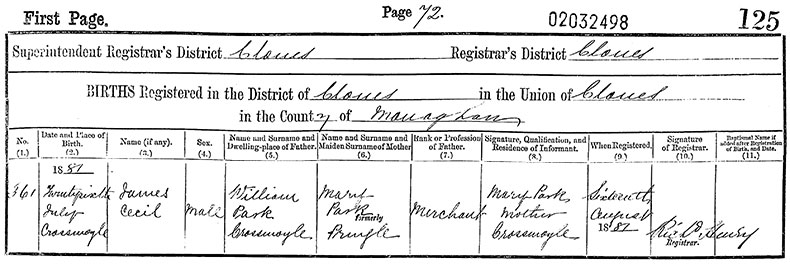 First Page. Page 72. 02032498 125
Superintendent Registrar's District Clones Registrar's District Clones
BIRTHS Registered in the District of Clones in the Union of Clones
in the County of Monaghan
No. (1.) Date and Place of Birth. (2.) Name (if any). (3.) Sex. (4.) Name and Surname and Dwelling-place of Father. (5.) Name and Surname and Maiden Surname of Mother (6.) Rank or Profession of Father. (7.) Signature, Qualification, and Residence of Informant. (8.) When Registered. (9.) Signature of Registrar. (10.) Baptismal Name if added after Registration of Birth, and Date. (11.)
1887
361 Twentysixth James William Mary Mary Park Sixteenth
July Cecil Male Park Park Formerly Merchant Mother August
Crossmoyle Crossmoyle Pringle Crossmoyle 1887 Henry
Registrar.